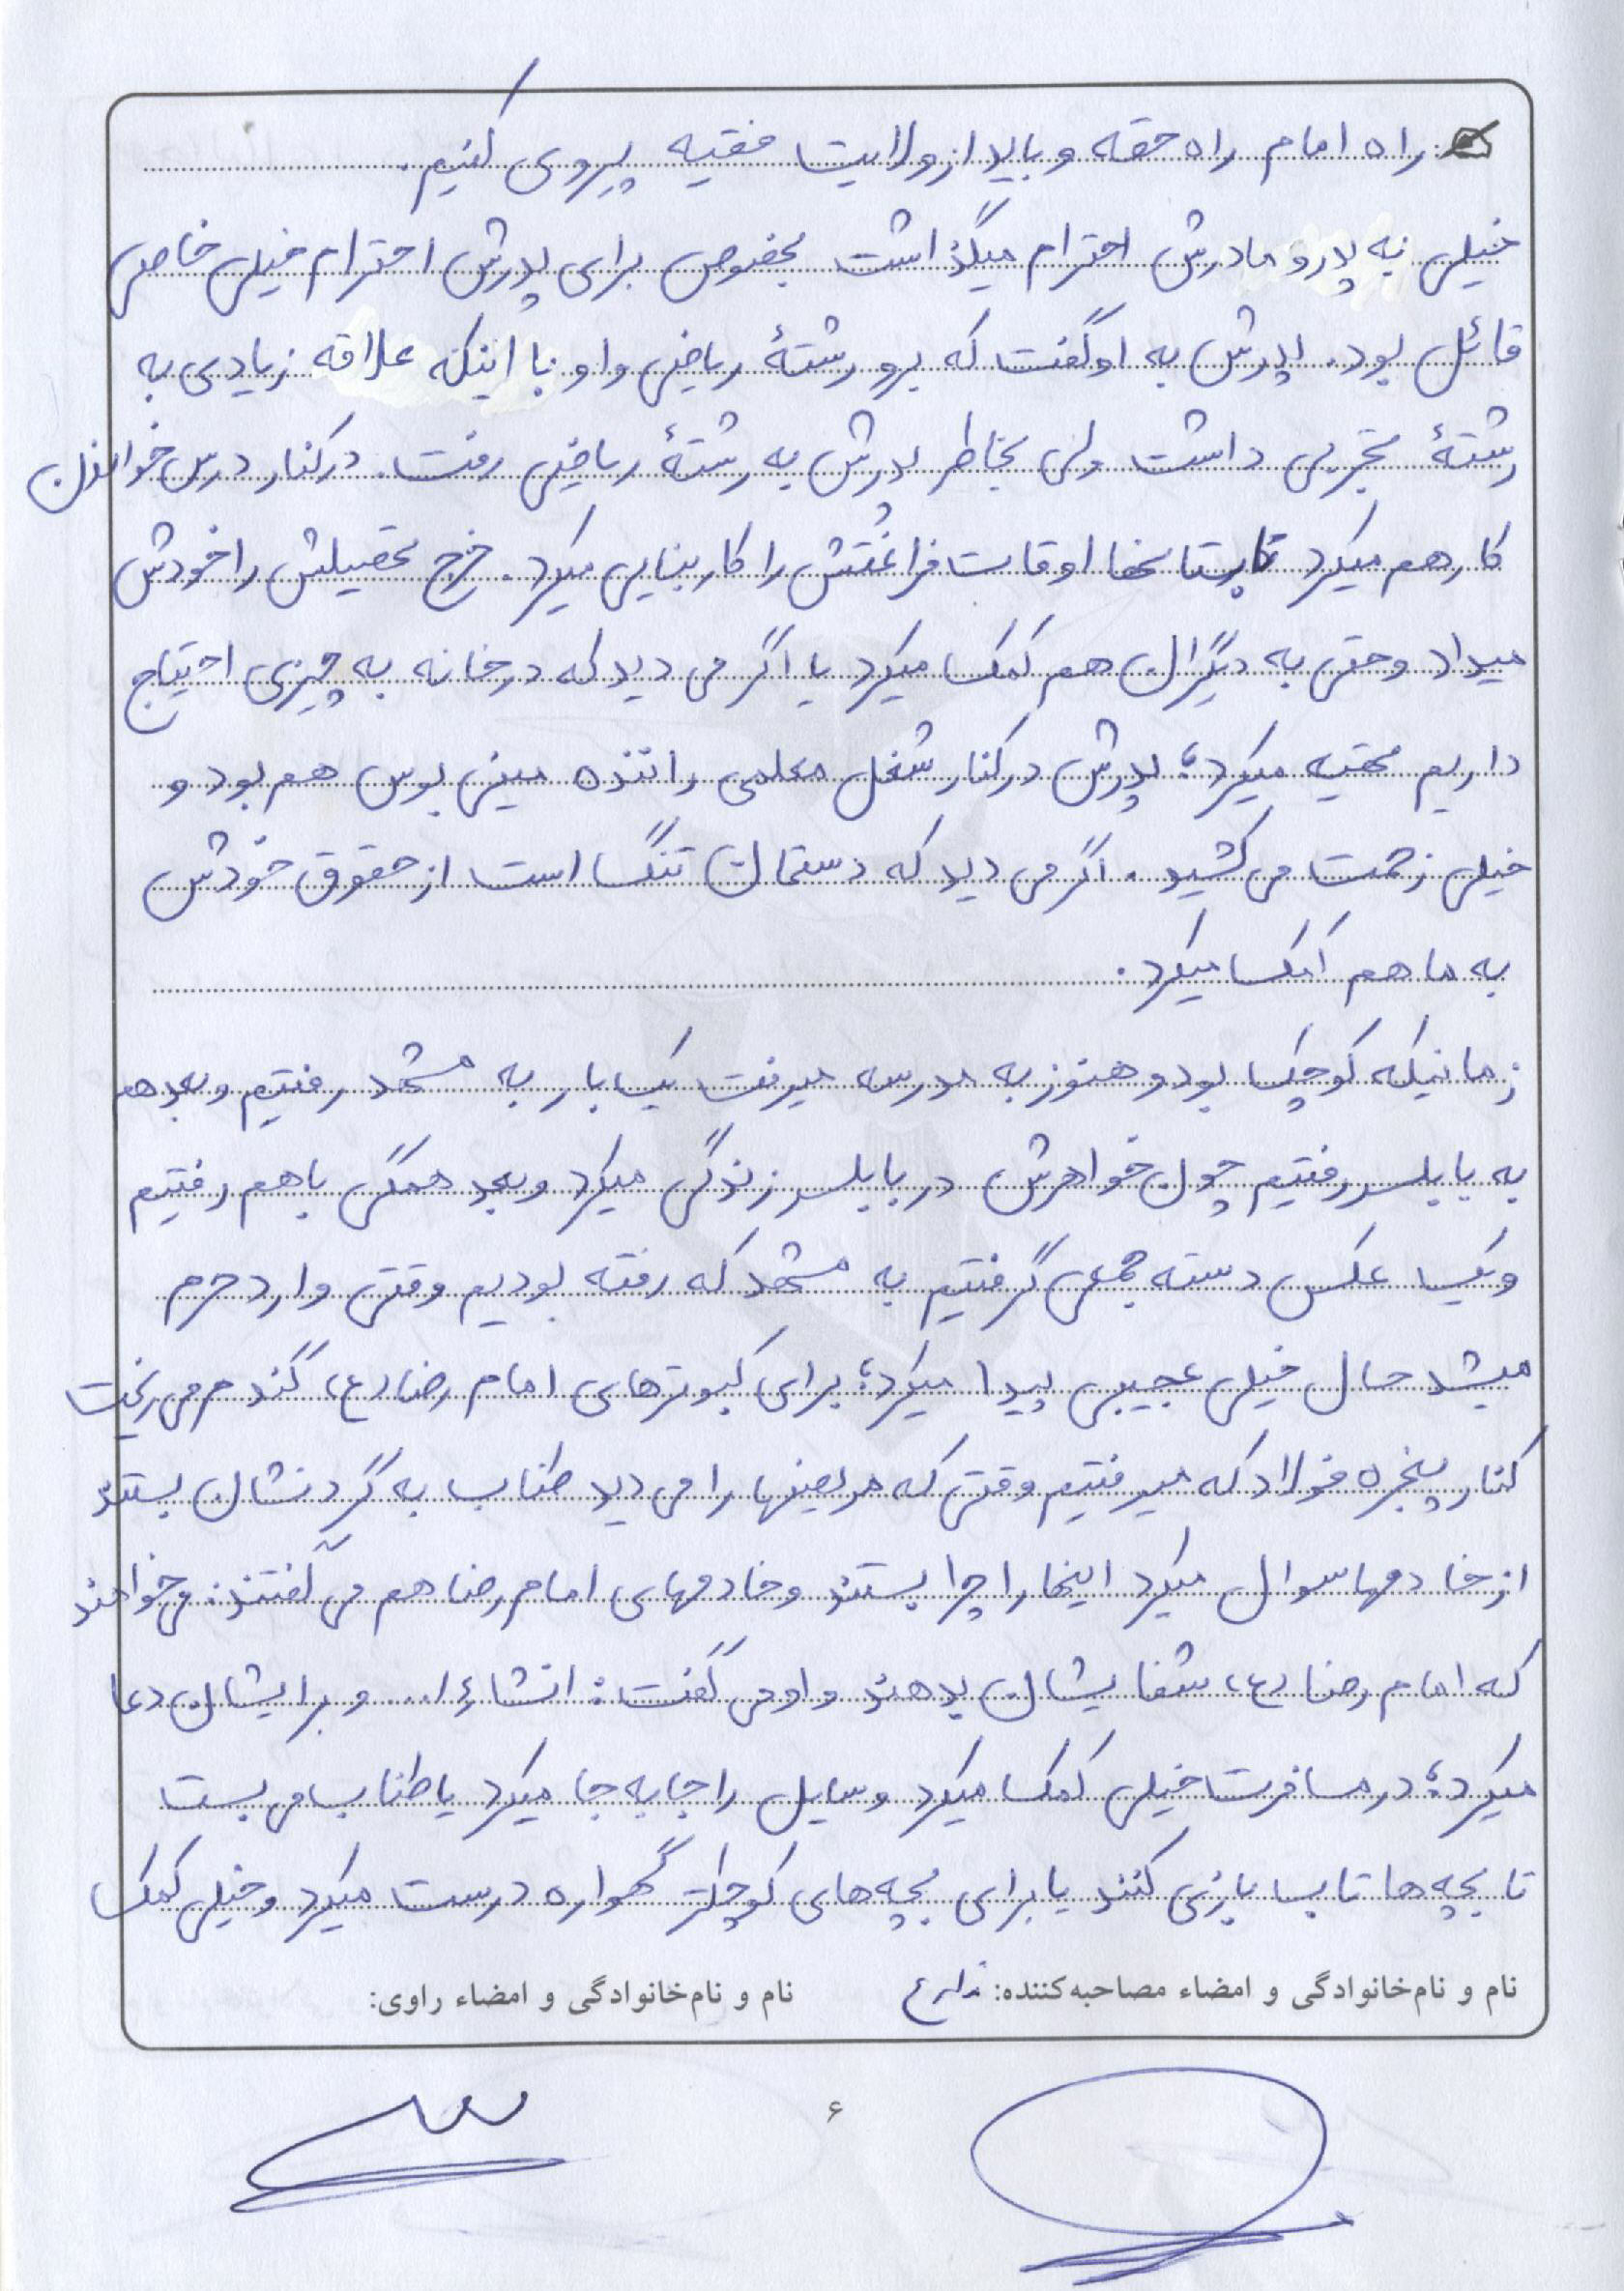 راه امام راه حقه و باید از ولایت فقیه پیروی کنیم.
خیلی به پدر و مادرش احترام میگذاشت بخصوص برای پدرش احترام خیلی خاصی
قائل بود. پدرش به او گفت که برو رشتهٔ ریاضی و او با اینکه علاقه زیادی به
رشتهٔ تجربی داشت ولی بخاطر پدرش به رشتهٔ ریاضی رفت. در کنار درس خواندن
کار هم میکرد تابستانها اوقات فراغُتش را کار بنایی میکرد. خرج تحصیلش را خودش
میداد و حتی به دیگران هم کمک میکرد یا اگر می دید که در خانه به چیزی احتیاج
داریم تهیه میکرد؛ پدرش در کنار شغل معلمی راننده مینی بوس هم بود و
خیلی زحمت می کشید. اگر می دید که دستمان تنگ است از حقوق خودش
به ما هم کمک میکرد.
زمانیکه کوچک بود و هنوز به مدرسه میرفت یک بار به مشهد رفتیم و بعد هم
به بابلسر رفتیم چون خواهرش در بابلسر زندگی میکرد و بعد همگی باهم رفتیم
و یک عکس دسته جمعی گرفتیم به مشهد که رفته بودیم وقتی وارد حرم
میشد حال خیلی عجیبی پیدا میکرد؛ برای کبوترهای امام رضا (ع) گندم می ریخت
کنار پنجره فولاد که میرفتیم وقتی که مریضها را می دید طناب به گردنشان بستند
از خادمها سوال میکرد اینها را چرا بستند و خادمهای امام رضا هم می گفتند: می خواهند
که امام رضا (ع) شفایشان بدهند و او می گفت: انشاءا... و برایشان دعا
میکرد؛ در مسافرت خیلی کمک میکرد وسایل را جا به جا میکرد یا طناب می بست
تا بچه ها تاب بازی کنند یا برای بچه های کوچکتر گهواره درست میکرد و خیلی کمک
نام و نام‌خانوادگی و امضاء مصاحبه‌کننده:
نام و نام‌خانوادگی و امضاء راوی:
۶